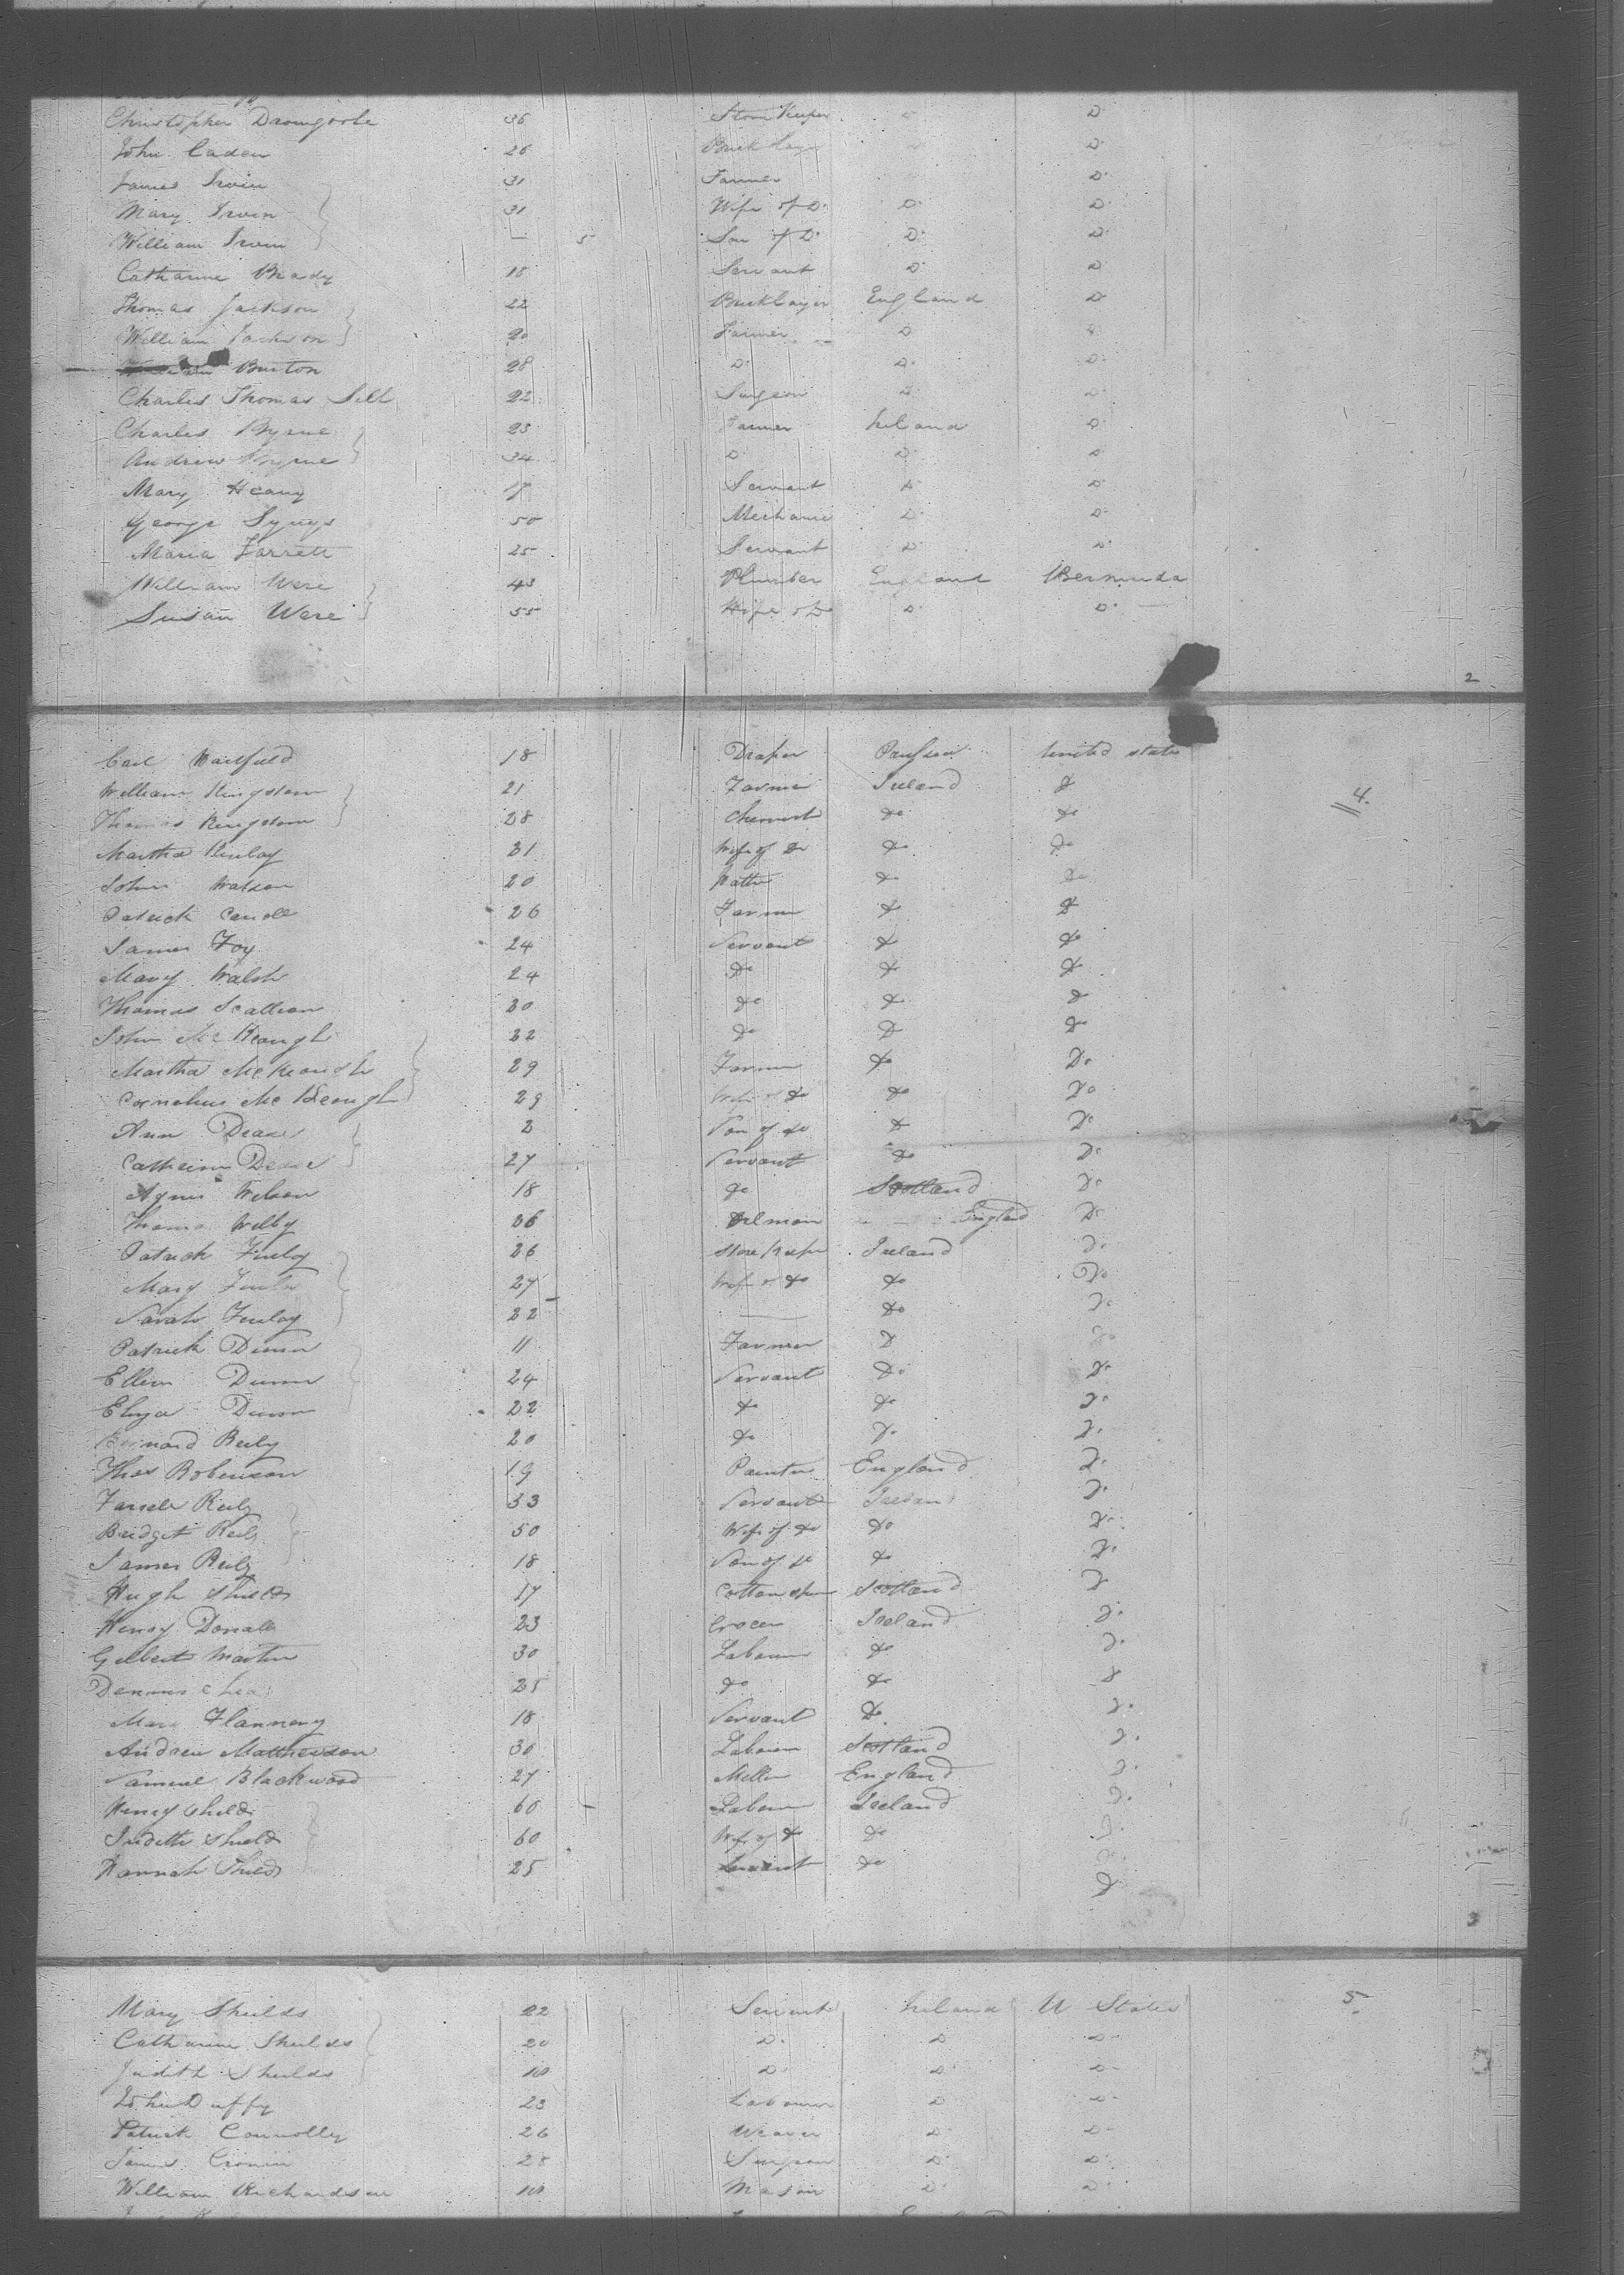 Christopher Dromgoole 36 Store Keeper D. D.
John Caden 26 Bricklayer D.
James Irvin 31 Farmer D.
Mary Irvin 31 Wife of D. D. D.
William Irvin – 5 Son of D. D. D.
Catharine Brady 18 Servant D. D.
Thomas Jackson 22 Bricklayer England D.
William Jackson 20 Farmer D. D.
Burton 28 D. D. D.
Charles Thomas Sill 22 Surgeon D. D.
Charles Byrne 23 Farmer Ireland D.
Andrew Byrne 34 D. D. D.
Mary Heany 17 Servant D. D.
George Synys 50 Mechanic D. D.
Maria Jarrett 25 Servant D. D.
William Were 43 Plumber England Bermuda
Susan Were 55 Wife of Do D. D.
2
Carl 18 Draper Prussia United states
4.
William Kingston 21 Farmer Ireland Do
Thomas Kingston 28 Chemist Do Do
Martha Finlay 31 Wife of Do Do Do
John Watson 20 Do Do
Patrick Caroll 26 Farmer Do Do
James Foy 24 Servant Do Do
Mary Walsh 24 Do Do Do
Thomas Scallion 30 Do Do Do
John McKeough 32 Do Do Do
Martha McKeough 29 Farmer Do Do
Cornelius McKeough 29 Wife of Do Do Do
Ann Deane 2 Son of do Do Do
Catherine Deane 27 Servant Do Do
Agnes Wilson 18 Do Scotland Do
Thomas Welby 36 Oilman England Do
Patrick Finlay 26 Store Keeper Ireland Do
Mary Finlay 27 Wife of Do Do Do
Sarah Finlay 22 — Do Do
Patrick Dunn 11 Farmer Do Do
Ellen Dunn 24 Servant Do Do
Eliza Dunn 22 Do Do Do
Bernard Reily 20 Do Do Do
Thos Robinson 19 Painter England Do
Farrell Reily 53 Servant Ireland Do
Bridget Reily 50 Wife of Do Do Do
James Reily 18 Son of do Do Do
Hugh Shields 17 Cotton spinner Scotland Do
Henry Donnell 23 Grocer Ireland Do
Gilbert Martin 30 Labourer Do Do
Dennis Shea 25 Do Do Do
Mary Flannery 18 Servant Do Do
Andrew Matthewson 30 Labourer Scotland Do
Samuel Blackwood 27 Miller England Do
Henry Shields 60 – Labourer Ireland Do
Judith Shields 60 Wife of Do Do Do
Hannah Shields 25 Servant Do Do
Do
3
Mary Shields 22 Servant Ireland U States
5
Catharine Shields 20 D. D D
Judith Shields 18 D. D D
John Duffy 23 Labourer D D
Patrick Connolly 26 Weaver D D
James Cronin 28 Surgeon D. D.
William Richardson 18 Mason D. D.